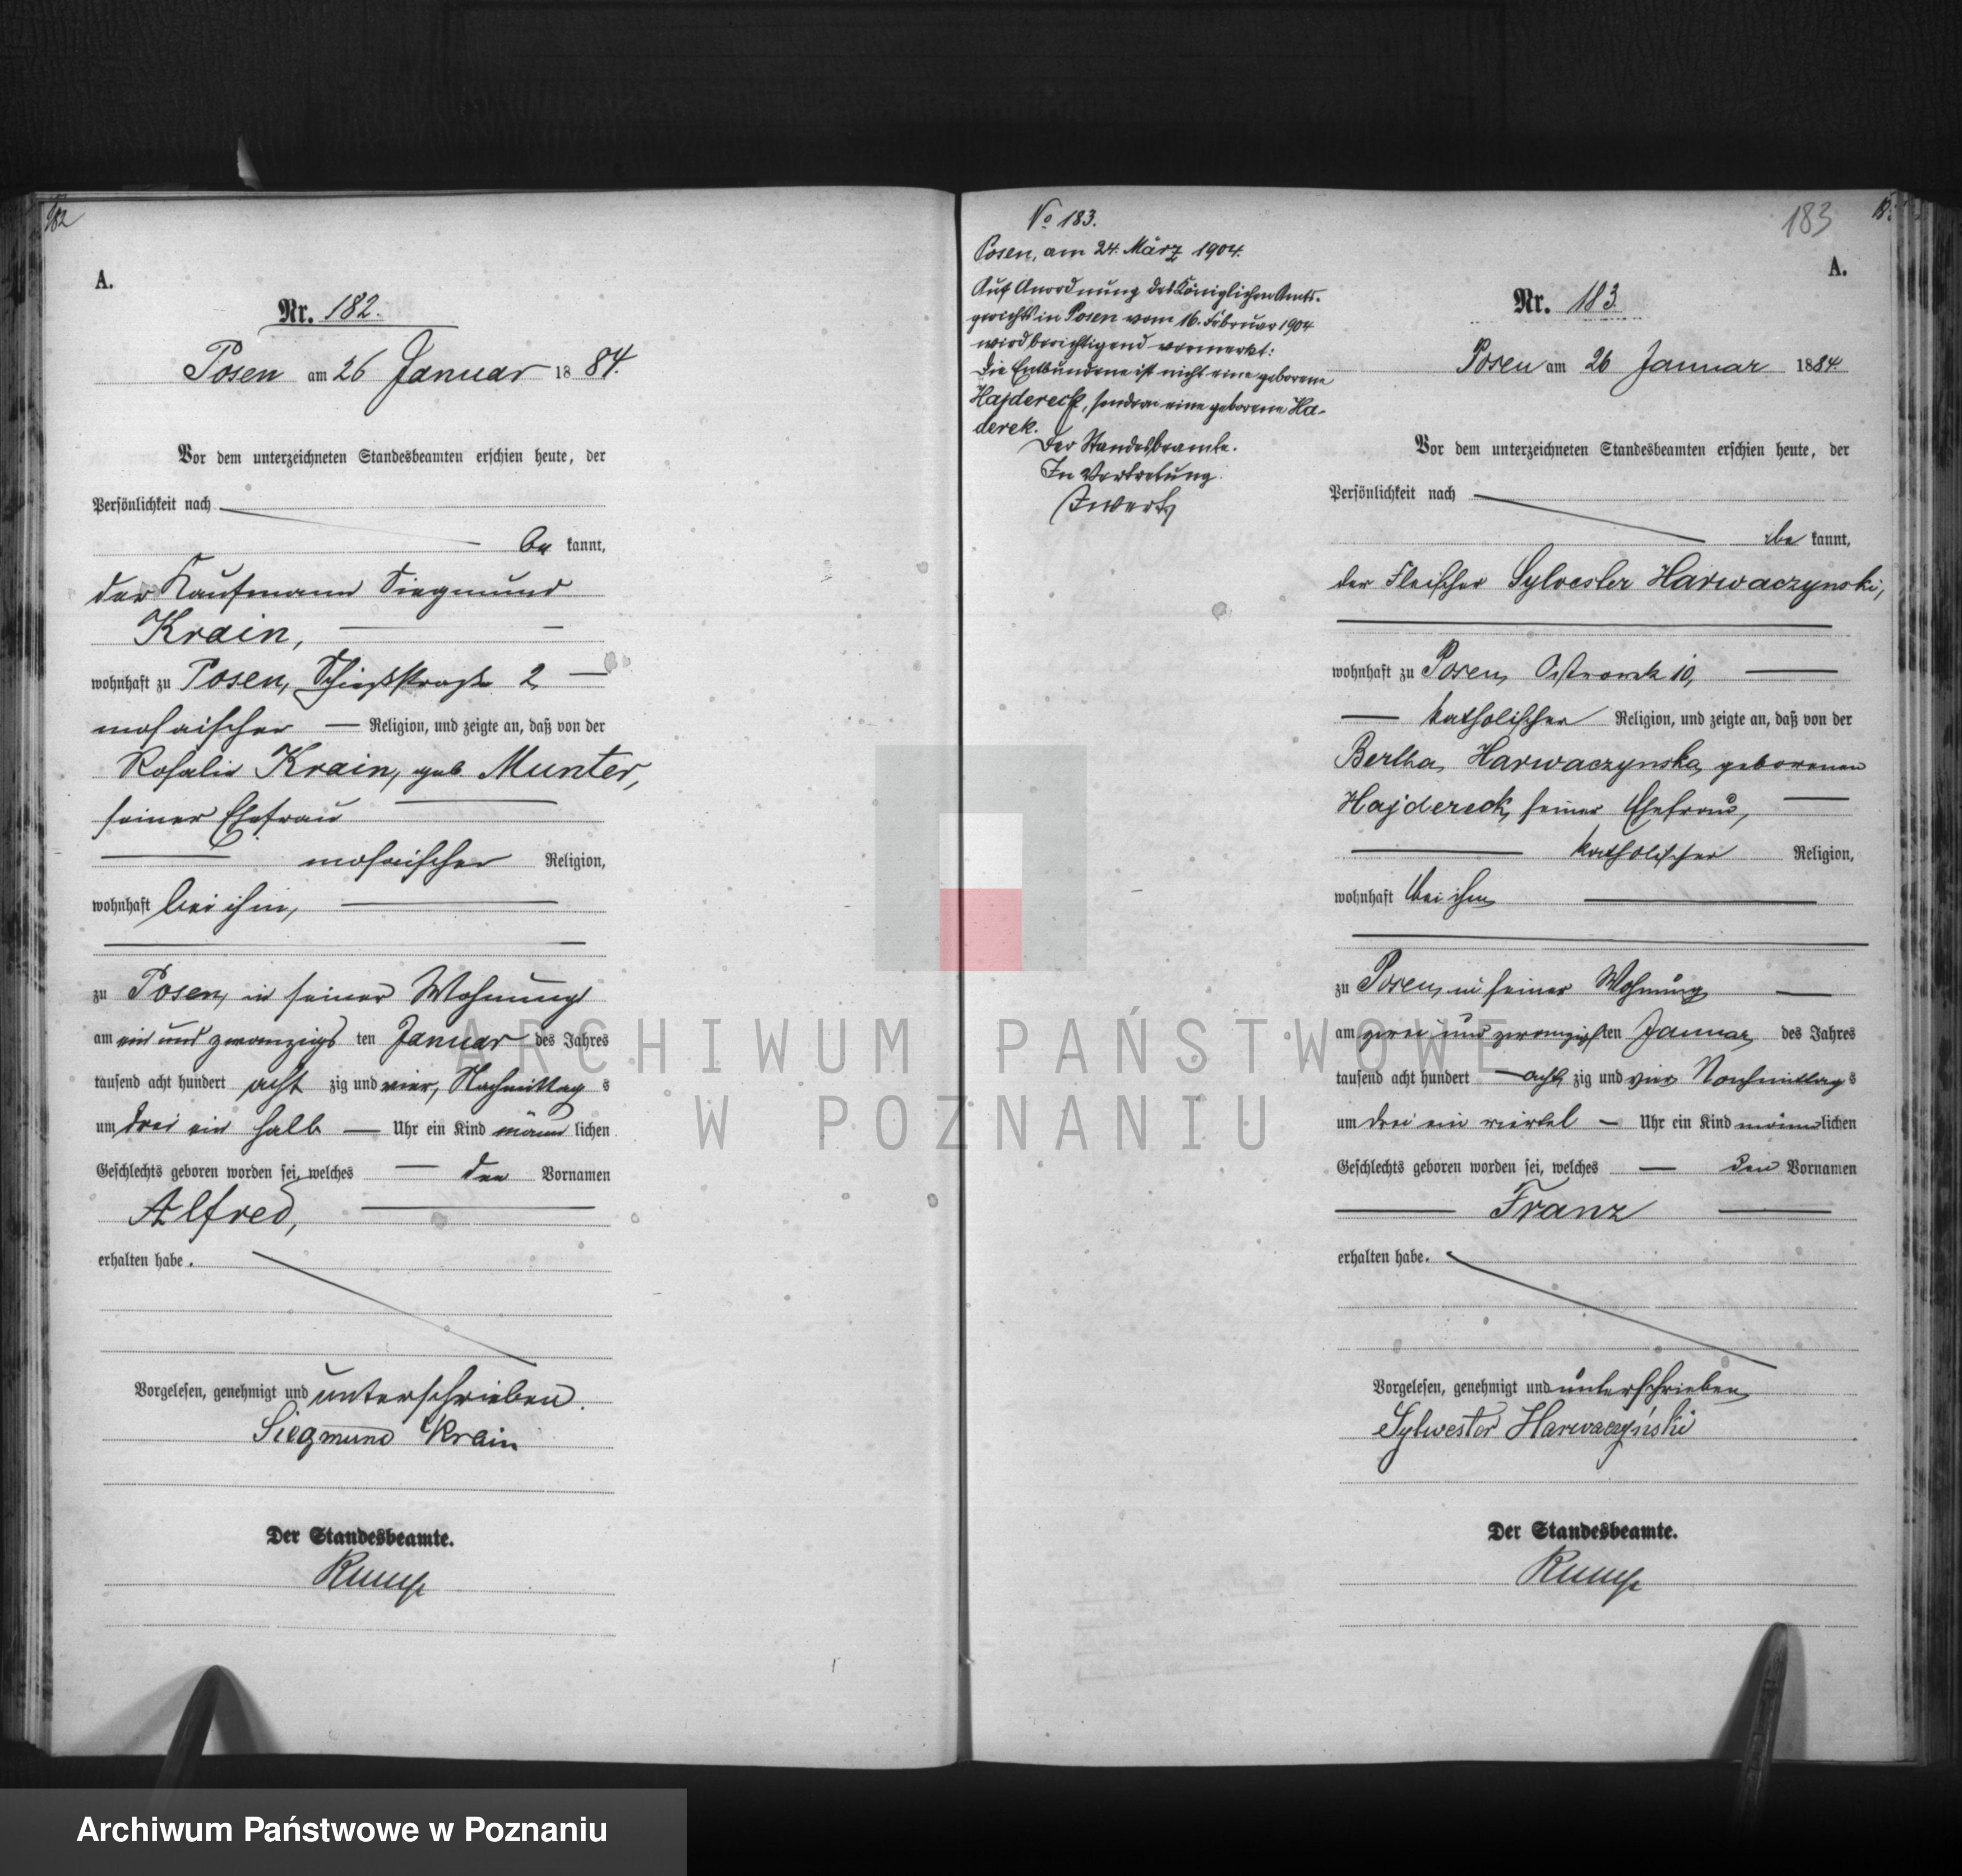 182
A.
Nr. 182.
Posen am 26 Januar 1884.
Vor dem unterzeichneten Standesbeamten erschien heute, der
Persönlichkeit nach
be kannt,
der Kaufmann Siegmund
Krain,
wohnhaft zu Posen, Schießstraße 2
mosaischer Religion, und zeigte an, daß von der
Rosalie Krain, geb. Munter,
seiner Ehefrau
mosaischer Religion,
wohnhaft bei ihm,
zu Posen, in seiner Wohnung
am ein und zwanzigs ten Januar des Jahres
tausend acht hundert acht zig und vier, Nachmittag s
um drei ein halb Uhr ein Kind männ lichen
Geschlechts geboren worden sei, welches den Vornamen
Alfred,
erhalten habe.
Vorgelesen, genehmigt und unterschrieben.
Siegmund Krain
Der Standesbeamte.
No 183.
Posen, am 24. März 1904.
Auf Anordnung des Königlichen Amts-
gerichts in Posen vom 16. Februar 1904
wird berichtigend vermerkt:
Die Entbundene ist nicht eine geborene
Hajdereck, sondern eine geborene Ha-
derek.
Der Standesbeamte.
In Vertretung.
183
A.
Nr. 183.
Posen am 26 Januar 1884.
Vor dem unterzeichneten Standesbeamten erschien heute, der
Persönlichkeit nach
be kannt,
der Fleischer Sylvester Harwaczynski,
wohnhaft zu Posen, Ostrowek 10,
katholischer Religion, und zeigte an, daß von der
Bertha Harwaczynska, geborenen
Hajdereck, seiner Ehefrau,
katholischer Religion,
wohnhaft bei ihm
zu Posen, in seiner Wohnung
am zwei und zwanzigsten Januar des Jahres
tausend acht hundert acht zig und vier Nachmittag s
um drei ein viertel Uhr ein Kind männ lichen
Geschlechts geboren worden sei, welches den Vornamen
Franz
erhalten habe.
Vorgelesen, genehmigt und unterschrieben
Sylwester Harwaczyński
Der Standesbeamte.
ARCHIWUM PAŃSTWOWE
W POZNANIU
Archiwum Państwowe w Poznaniu